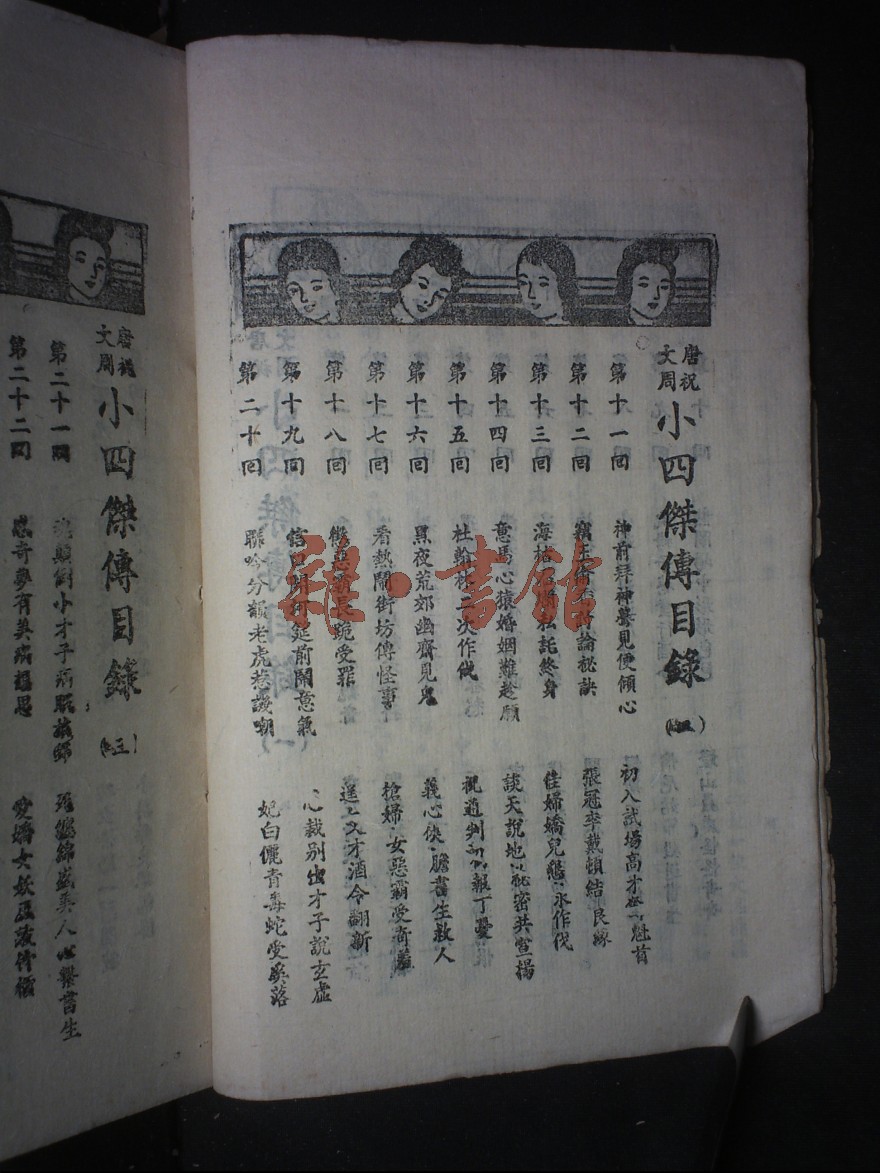 唐祝
文周
小四傑傳目錄
第十一回 神前拜神驚見便傾心 初入試場高才 魁首
第十二回 論秘訣 張冠李戴頓結良緣
第十三回 海 託終身 佳婦嬌兒懇 永作伐
第十四回 意馬心猿婚姻難趁願 談天說地 秘密共宣揚
第十五回 杜翰林二次作伐 祝通判 報丁憂
第十六回 黑夜荒郊幽齋見鬼 義心俠膽書生救人
第十七回 看熱鬧街坊傳怪事 搶婦女惡霸受奇羞
第十八回 懲惡霸長跪受罪 逞 文才酒令翻新
第十九回 信口開河筵前鬧意氣 心裁別出才子說玄虛
第二十回 聯吟分韻老虎惹譏嘲 妃白儷青毒蛇受奚落
雜·書館
唐祝
文周
小四傑傳目錄
(三)
第二十一回 顛倒小才子病 美人心繫書生
第二十二回 感奇夢有美病相思 愛嬌女